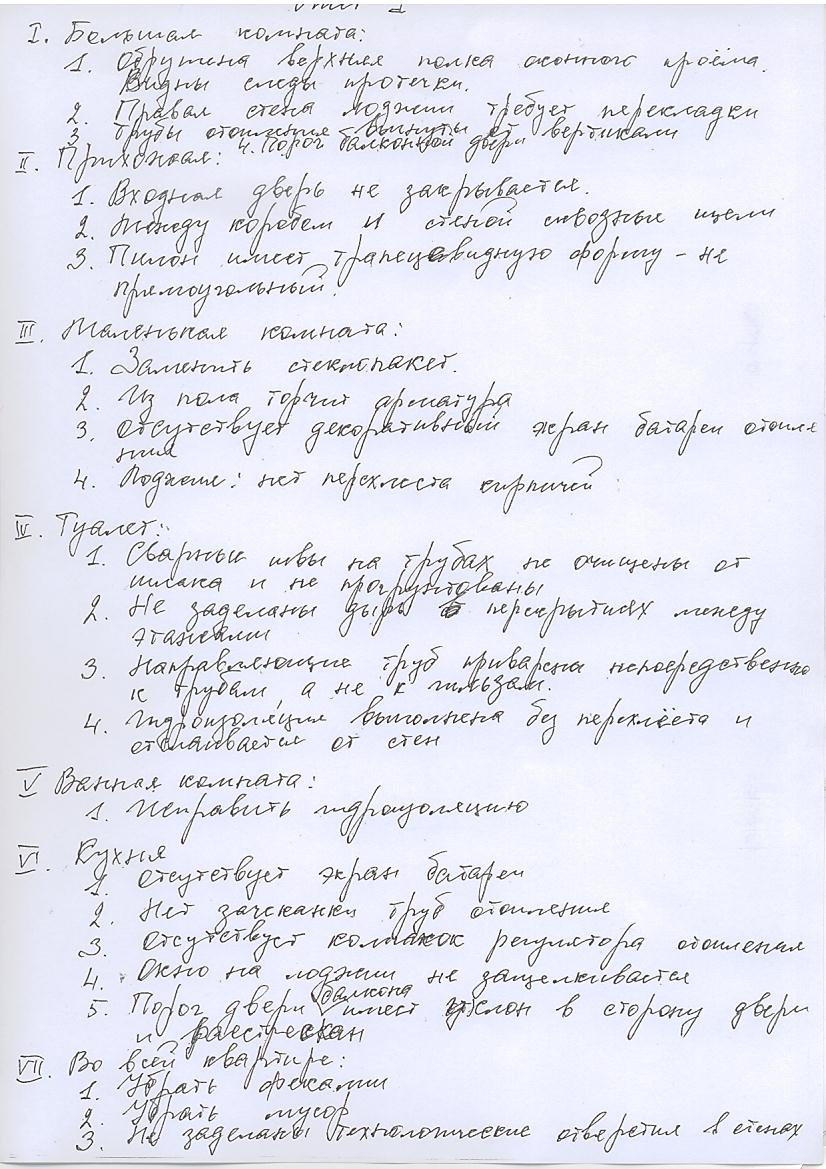 I. Большая комната:
1. Обрушена верхняя полка оконного проёма.
Видны следы протечки.
2. Правая стена лоджии требует перекладки
3 Трубы отопления выгнуты от вертикали
4. Порог балконной двери
II. Прихожая:
1. Входная дверь не закрывается.
2. Между коробом и стеной сквозные щели
3. Пилон имеет трапецевидную форму - не
прямоугольный.
III. Маленькая комната:
1. Заменить стеклопакет.
2. Из пола торчит арматура
3. Отсутствует декоративный экран батареи отопле
ния
4. Лоджия: нет перехлеста кирпичей
IV. Туалет:
1. Сварные швы на трубах не очищены от
шлака и не прогрунтованы
2. Не заделаны дыры в перекрытиях между
этажами
3. Направляющие труб приварены непосредственно
к трубам а не к гильзам.
4. Гидроизоляция выполнена без перехлёста и
отслаивается от стен
V Ванная комната:
1. Исправить гидроизоляцию
VI. Кухня
1. Отсутствует экран батареи
2. Нет зачеканки труб отопления
3. Отсутствует колпачок регулятора отопления
4. Окно на лоджии не защелкивается
5. Порог двери балкона имеет уклон в сторону двери
и растрескан
VII. Во всей квартире:
1. Убрать фекалии
2. Убрать мусор
3. Не заделаны технологические отверстия в стенах